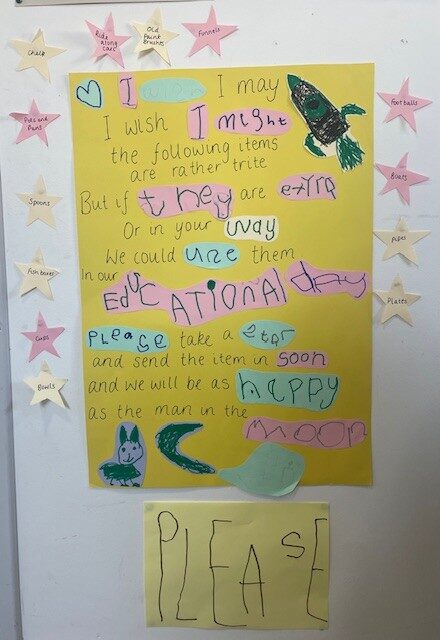 Chalk
Ride along cars
Old Paint Brushes
Funnels
Pots and Pans
Spoons
Fish boxes
Cups
Bowls
Footballs
Boats
Pipes
Plates
I wish I may
I wish I might
the following items
are rather trite
But if they are extra
Or in your way
We could uze them
In our
EducATIONAl day
PLeace take a star
and send the item in soon
and we will be as happy
as the man in the
moon
PLEASE